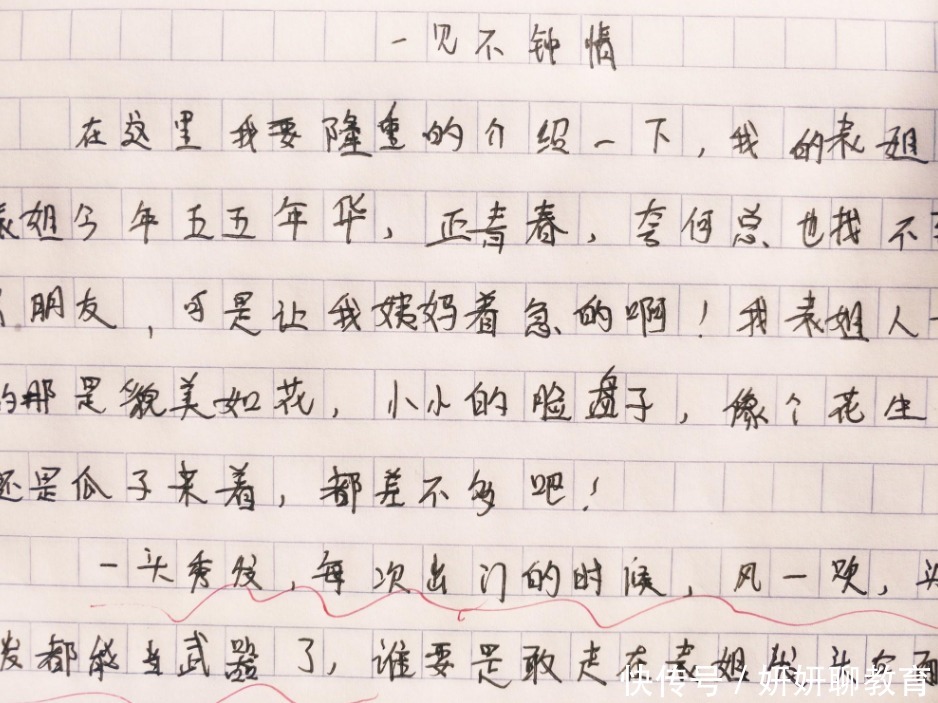 一见不钟情
在这里我要隆重的介绍一下，我的表姐
表姐今年五五年华，正青春，奈何总也找不
朋友，可是让我姨妈着急的啊！我表姐人
的那是貌美如花，小小的脸盘子，像个花生
还是瓜子来着，都差不多吧！
一头秀发，每次出门的时候，风一吹，头
发都能当武器了，谁要是敢走在表姐
快传号 / 妍妍聊教育